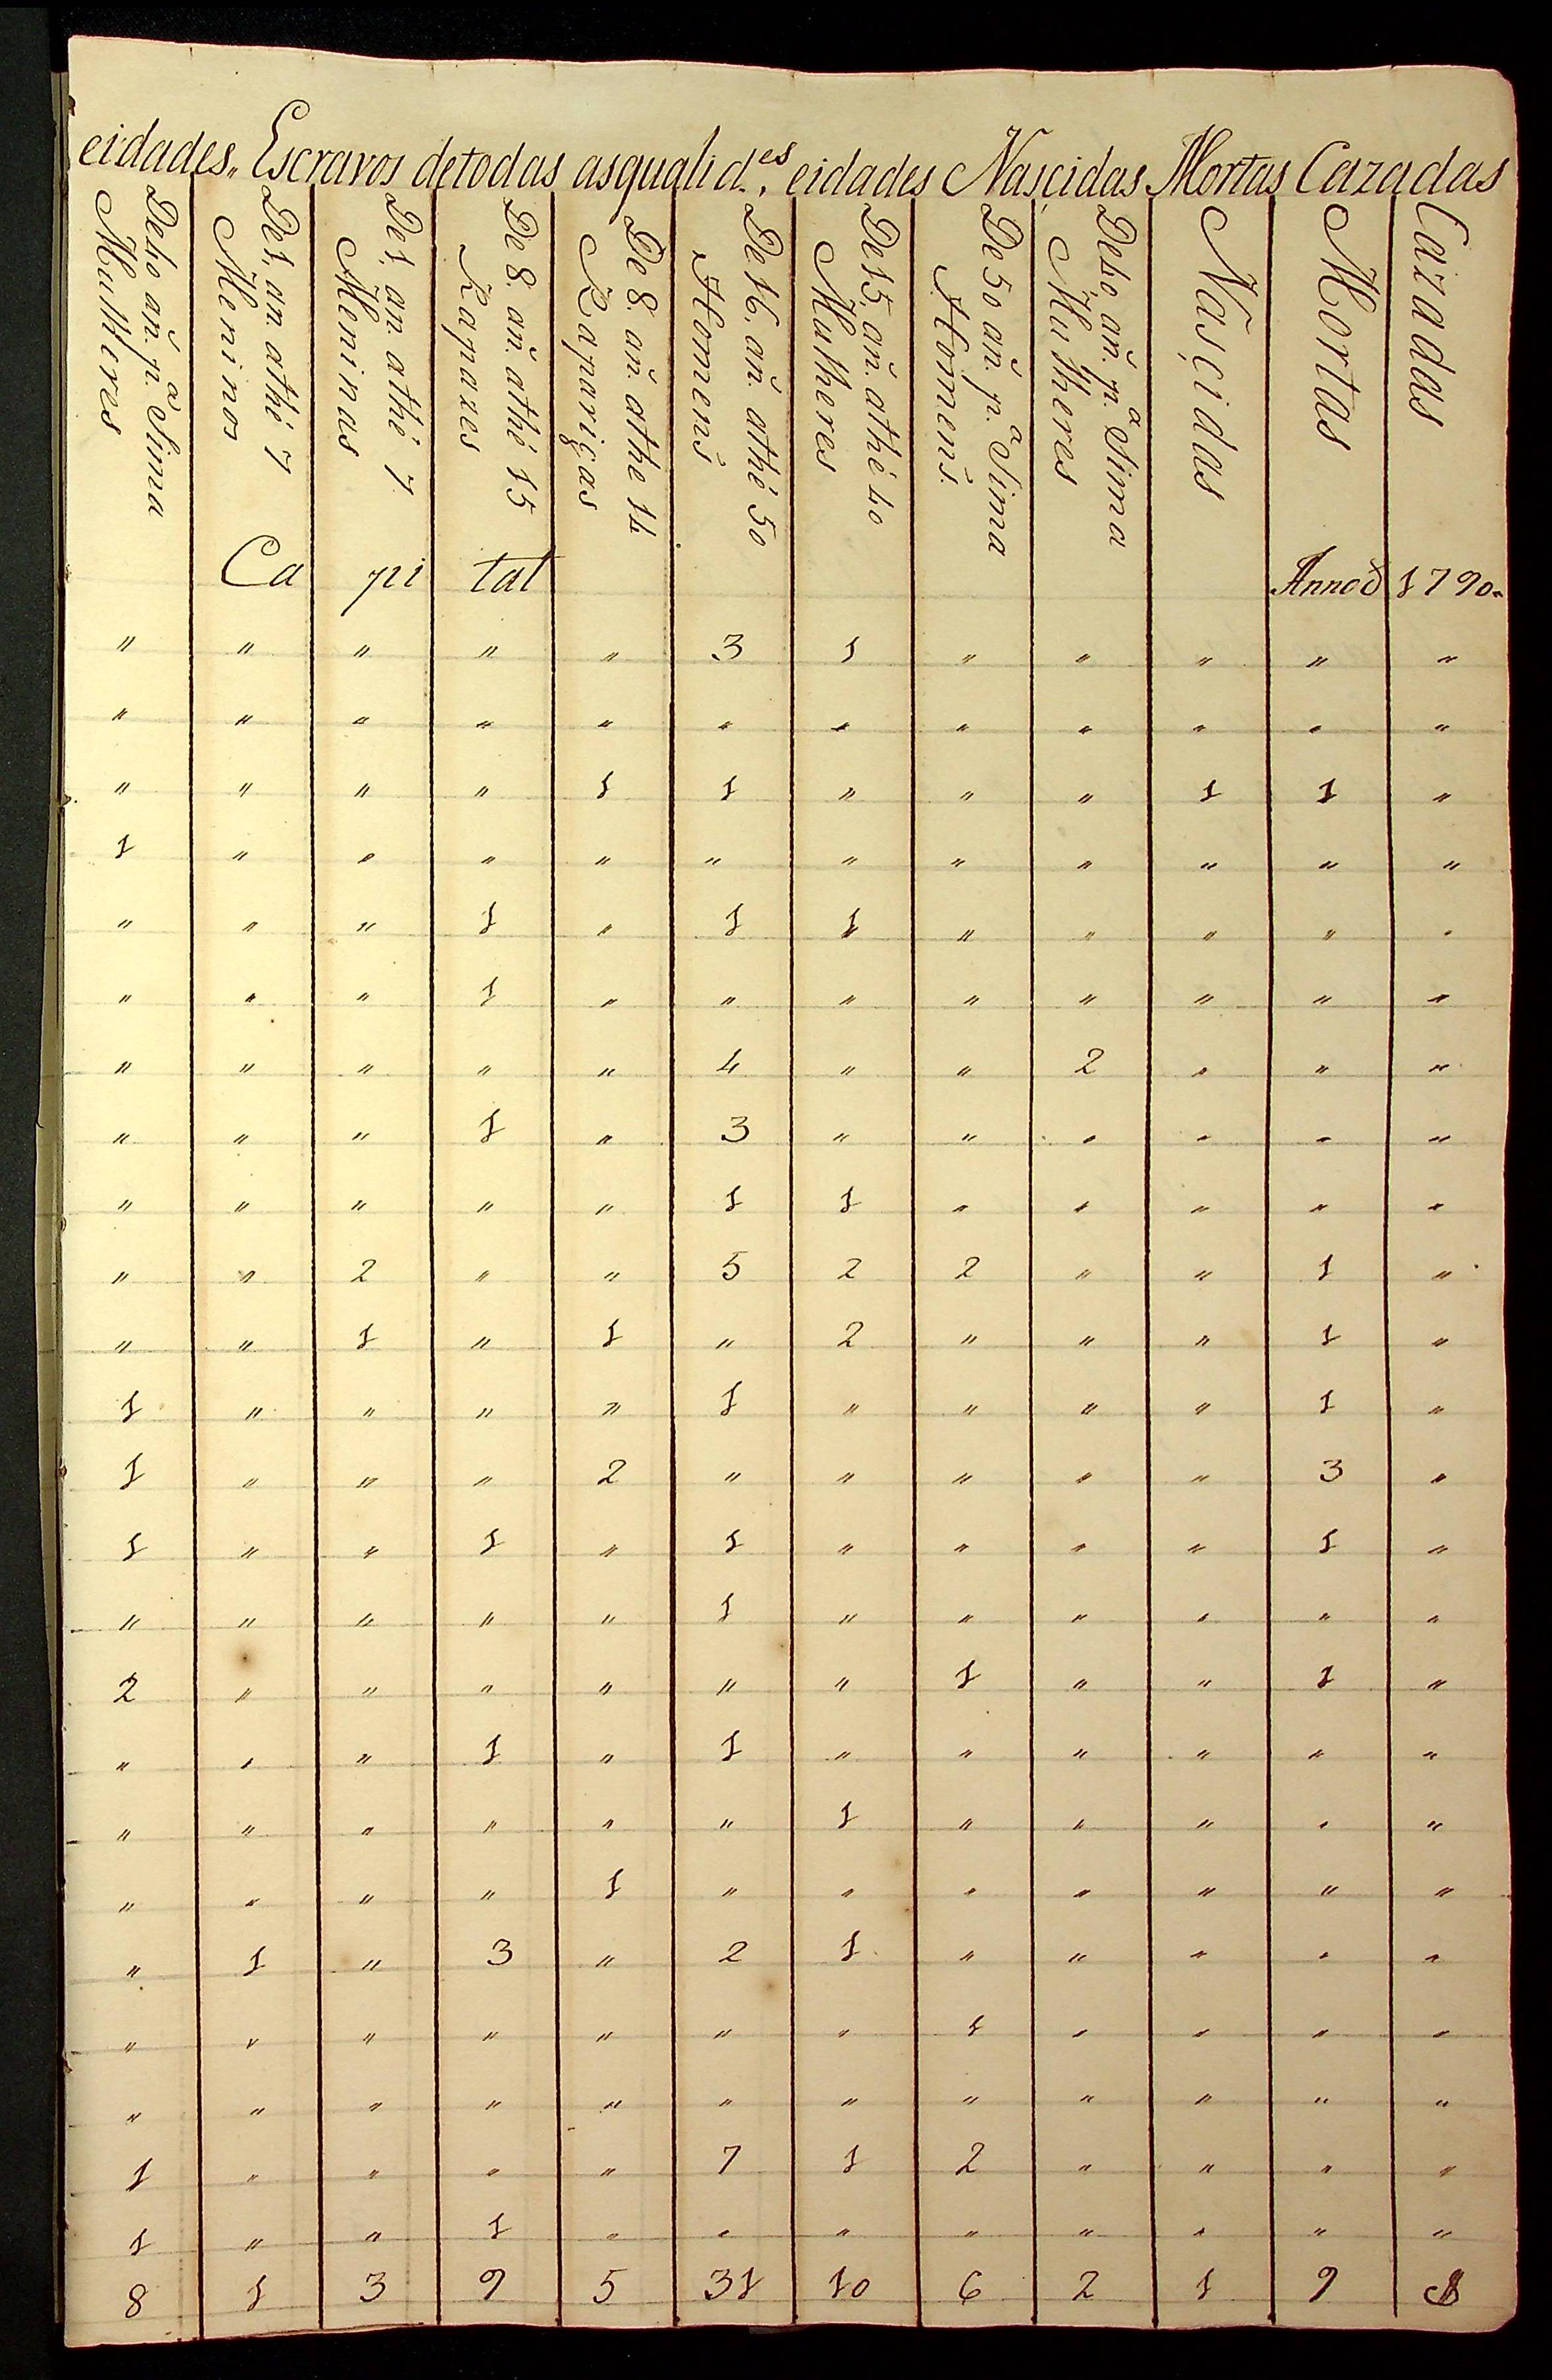 eidades,, Escravos detodas asqualid.es eidades Nascidas Mortas Cazadas
De 40 añ. p.a Sima Mulheres | De 1. an athé 7 Meninos | De 1. an athé 7 Meninas | De 8. añ. athé 15 Rapazes | De 8. añ. athe 14 Raparigas | De 16. añ. athé 50 Homens | De 15. añ. athé 40 Mulheres | De 50 añ. p.a Sima Homens. | De 40 añ. p.a Sima Mulheres | Nascidas | Mortas | Cazadas
Ca pi tal Anno d 1790
" " " " " 3 1 " " " " "
" " " " " " " " " " " "
" " " " 1 1 " " " 1 1 "
1 " " " " " " " " " " "
" " " 1 " 1 1 " " " " "
" " " 1 " " " " " " " "
" " " " " 4 " " 2 " " "
" " " 1 " 3 " " " " " "
" " " " " 1 1 " " " " "
" " 2 " " 5 2 2 " " 1 "
" " 1 " 1 " 2 " " " 1 "
1 " " " " 1 " " " " 1 "
1 " " " 2 " " " " " 3 "
1 " " 1 " 1 " " " " 1 "
" " " " " 1 " " " " " "
2 " " " " " " 1 " " 1 "
" " " 1 " 1 " " " " " "
" " " " " " 1 " " " " "
" " " " 1 " " " " " " "
" 1 " 3 " 2 1 " " " " "
" " " " " " " 1 " " " "
" " " " " " " " " " " "
1 " " " " 7 1 2 " " " "
1 " " 1 " " " " " " " "
8 1 3 9 5 31 10 6 2 1 9